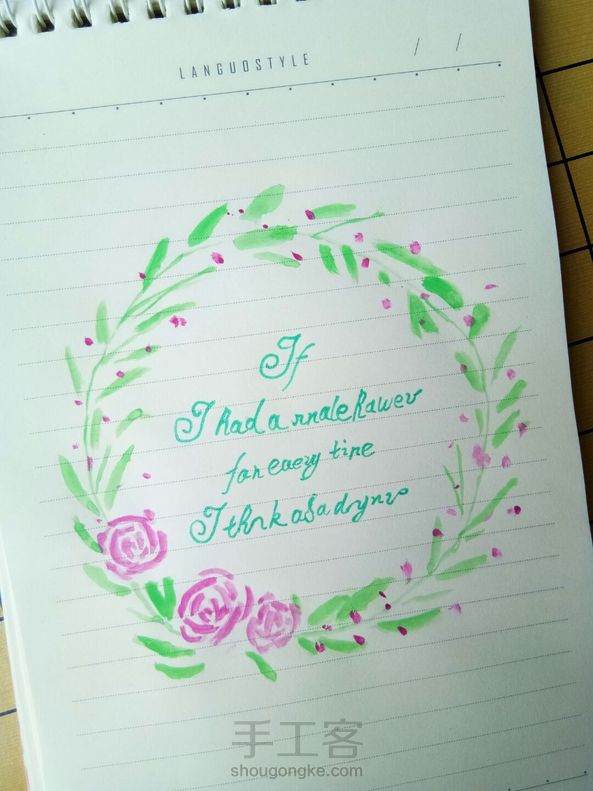 LANGUOSTYLE
/ /
If
I had a rnale hawev
for eaery tine
I thnk asa drynr
手工客
shougongke.com